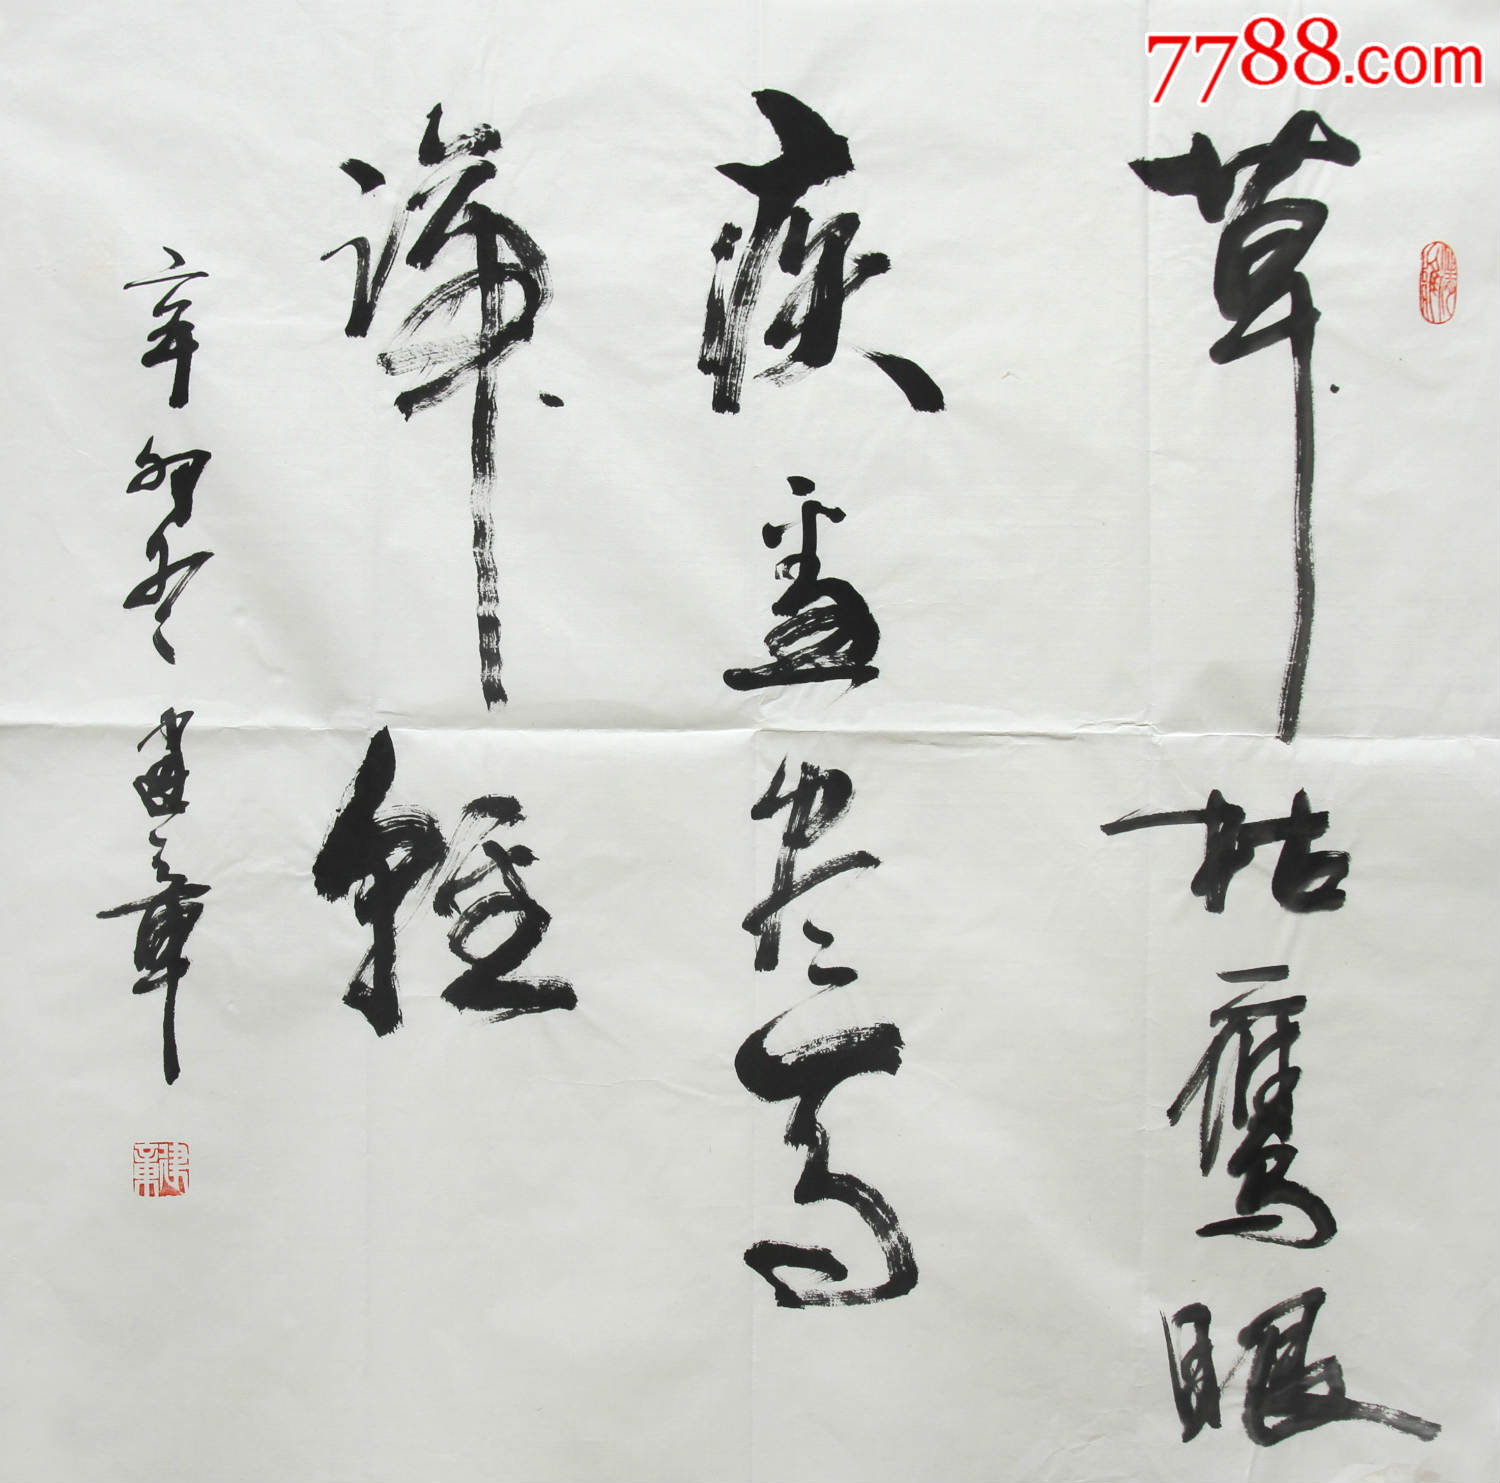 7788.com
草枯鹰眼
疾雪尽马
蹄轻
辛卯冬